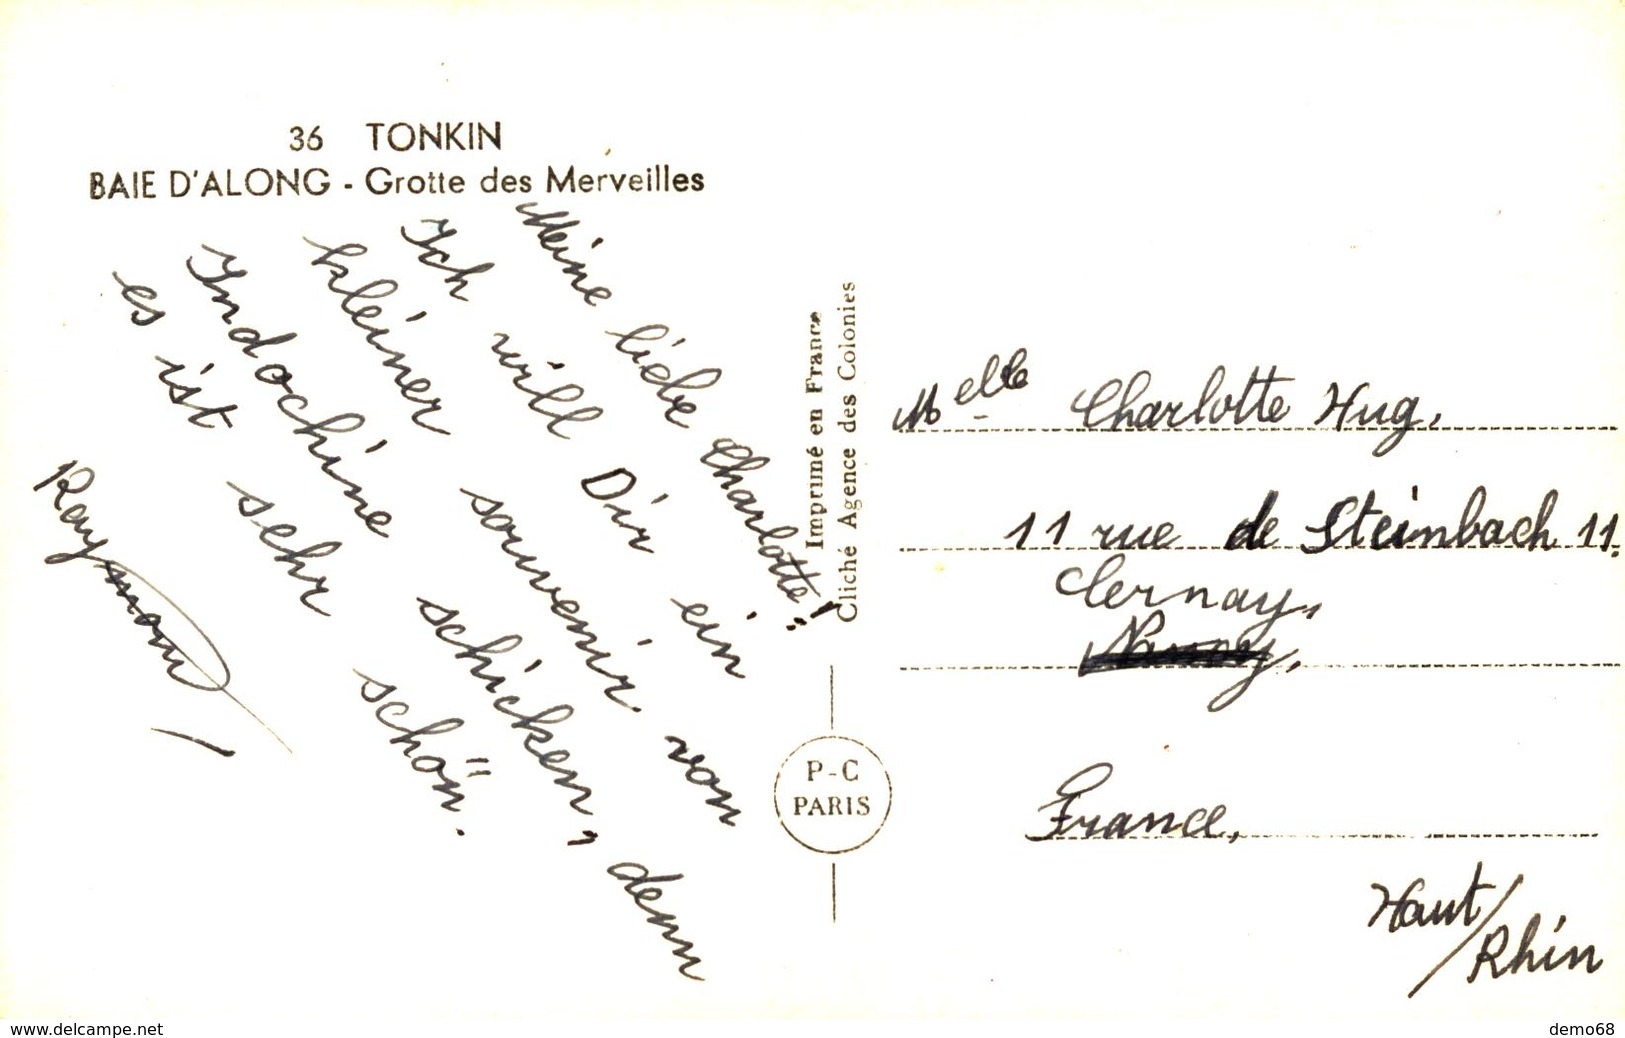 36 TONKIN
BAIE D'ALONG - Grotte des Merveilles
Meine liebe Charlotte!
Ich will Dir ein
kleiner souvenir von
Indochine schicken, denn
es ist sehr schön.
Raymond
Imprimé en France
Cliché Agence des Colonies
P-C
PARIS
Melle Charlotte Hug,
11 rue de Steinbach 11.
Cernay,
Nancy,
France,
Haut/
Rhin
www.delcampe.net
demo68